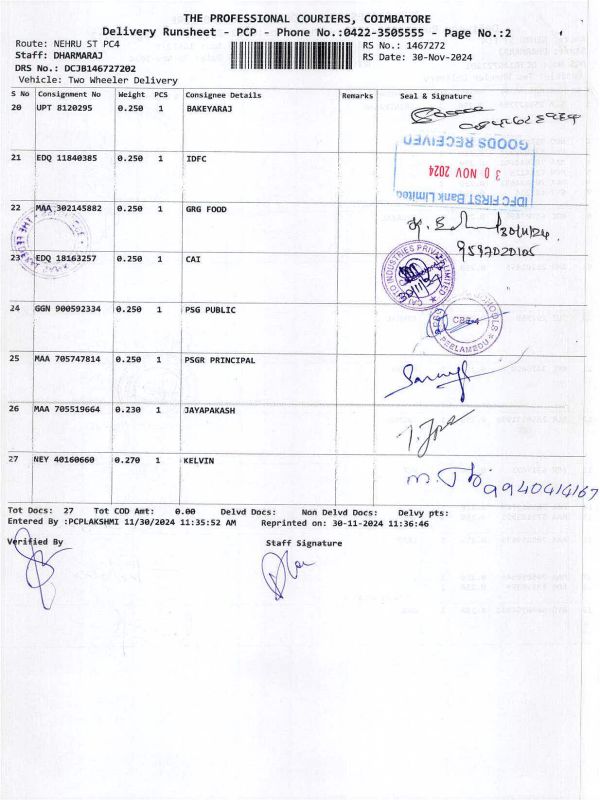 THE PROFESSIONAL COURIERS, COIMBATORE
Delivery Runsheet - PCP - Phone No.:0422-3505555 - Page No.:2
Route: NEHRU ST PC4 RS No.: 1467272
Staff: DHARMARAJ RS Date: 30-Nov-2024
DRS No.: DCJB146727202
Vehicle: Two Wheeler Delivery
S No Consignment No Weight PCS Consignee Details Remarks Seal & Signature
20 UPT 8120295 0.250 1 BAKEYARAJ
GOODS RECEIVED
21 EDQ 11840385 0.250 1 IDFC
30 NOV 2024
IDFC FIRST Bank Limited
22 MAA 302145882 0.250 1 GRG FOOD
30/11/24
9597020105
23 EDQ 18163257 0.250 1 CAI
INDUSTRIES PRIVATE LIMITED
24 GGN 900592334 0.250 1 PSG PUBLIC
PEELAMEDU
25 MAA 705747814 0.250 1 PSGR PRINCIPAL
26 MAA 705519664 0.230 1 JAYAPAKASH
27 NEY 40160660 0.270 1 KELVIN
9940414167
Tot Docs: 27 Tot COD Amt: 0.00 Delvd Docs: Non Delvd Docs: Delvy pts:
Entered By :PCPLAKSHMI 11/30/2024 11:35:52 AM Reprinted on: 30-11-2024 11:36:46
Verified By Staff Signature